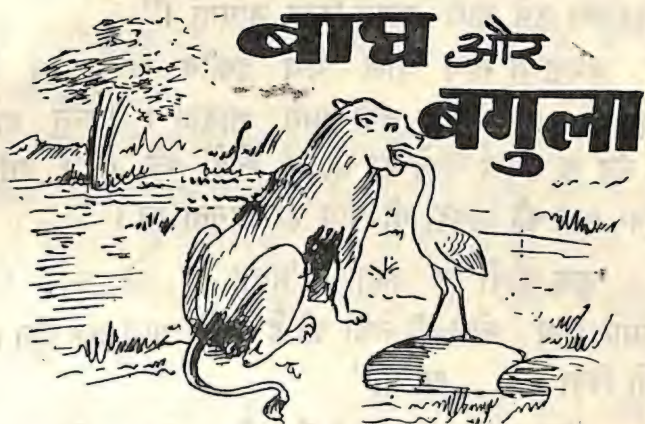 बाघ और
बगुला